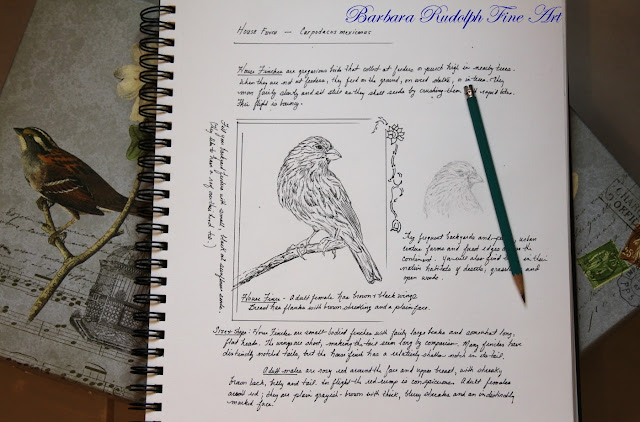 Barbara Rudolph Fine Art
House Finch — Carpodacus mexicanus
House Finches are gregarious birds that collect at feeders or perch high in nearby trees.
When they are not at feeders, they feed on the ground, on weed stalks, or in trees. They
move fairly slowly and sit still as they shell seeds by crushing them rapid bites.
Their flight is bouncy.
Fill your backyard feeders with small, black oil sunflower seeds.
They frequent backyards and urban
centers farms and forest edges across the
continent. You will also find in their
native habitats of deserts, and
open woods.
House Finch - Adult female has brown & black wings
Breast has flanks with brown streaking and a plain face.
Size & Shape: House Finches are small-bodied finches with fairly large beaks and somewhat long,
flat heads. The wings are short, making the tail seem long by comparison. Many finches have
distinctly notched tails, but the house finch has a relatively shallow notch in its tail.
Adult males are rosy red around the face and upper breast, with streaky
brown back, belly and tail. In flight the red rump is conspicuous. Adult females
aren't red; they are plain grayish-brown with thick, blurry streaks and an indistinctly
marked face.